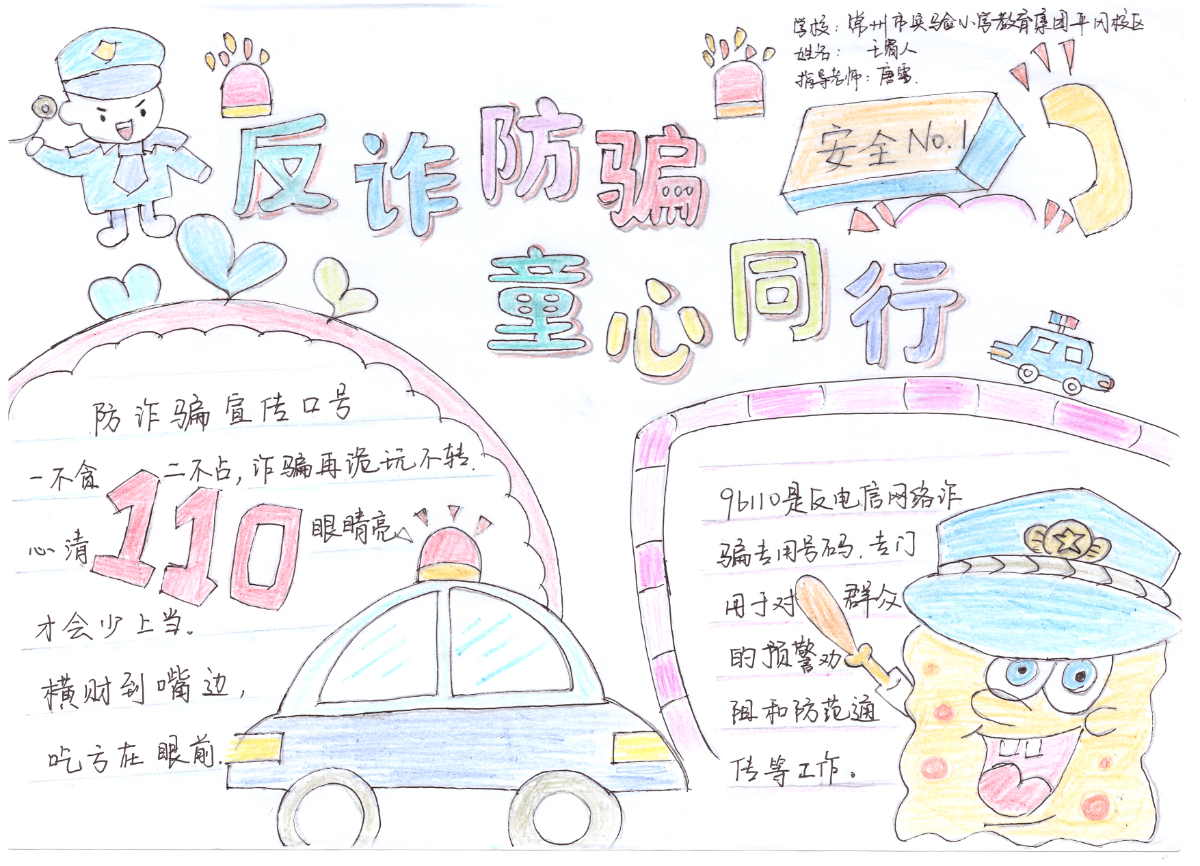 学校：常州市实验小学教育集团平冈校区
姓名：
指导老师：唐雪.
反诈防骗
安全No.1
童心同行
防诈骗宣传口号
一不贪 二不占，诈骗再诡玩不转.
心清110眼睛亮
才会少上当。
横财到嘴边，
吃亏在眼前.
96110是反电信网络诈
骗专用号码.专门
用于对群众
的预警劝
阻和防范通
传等工作。